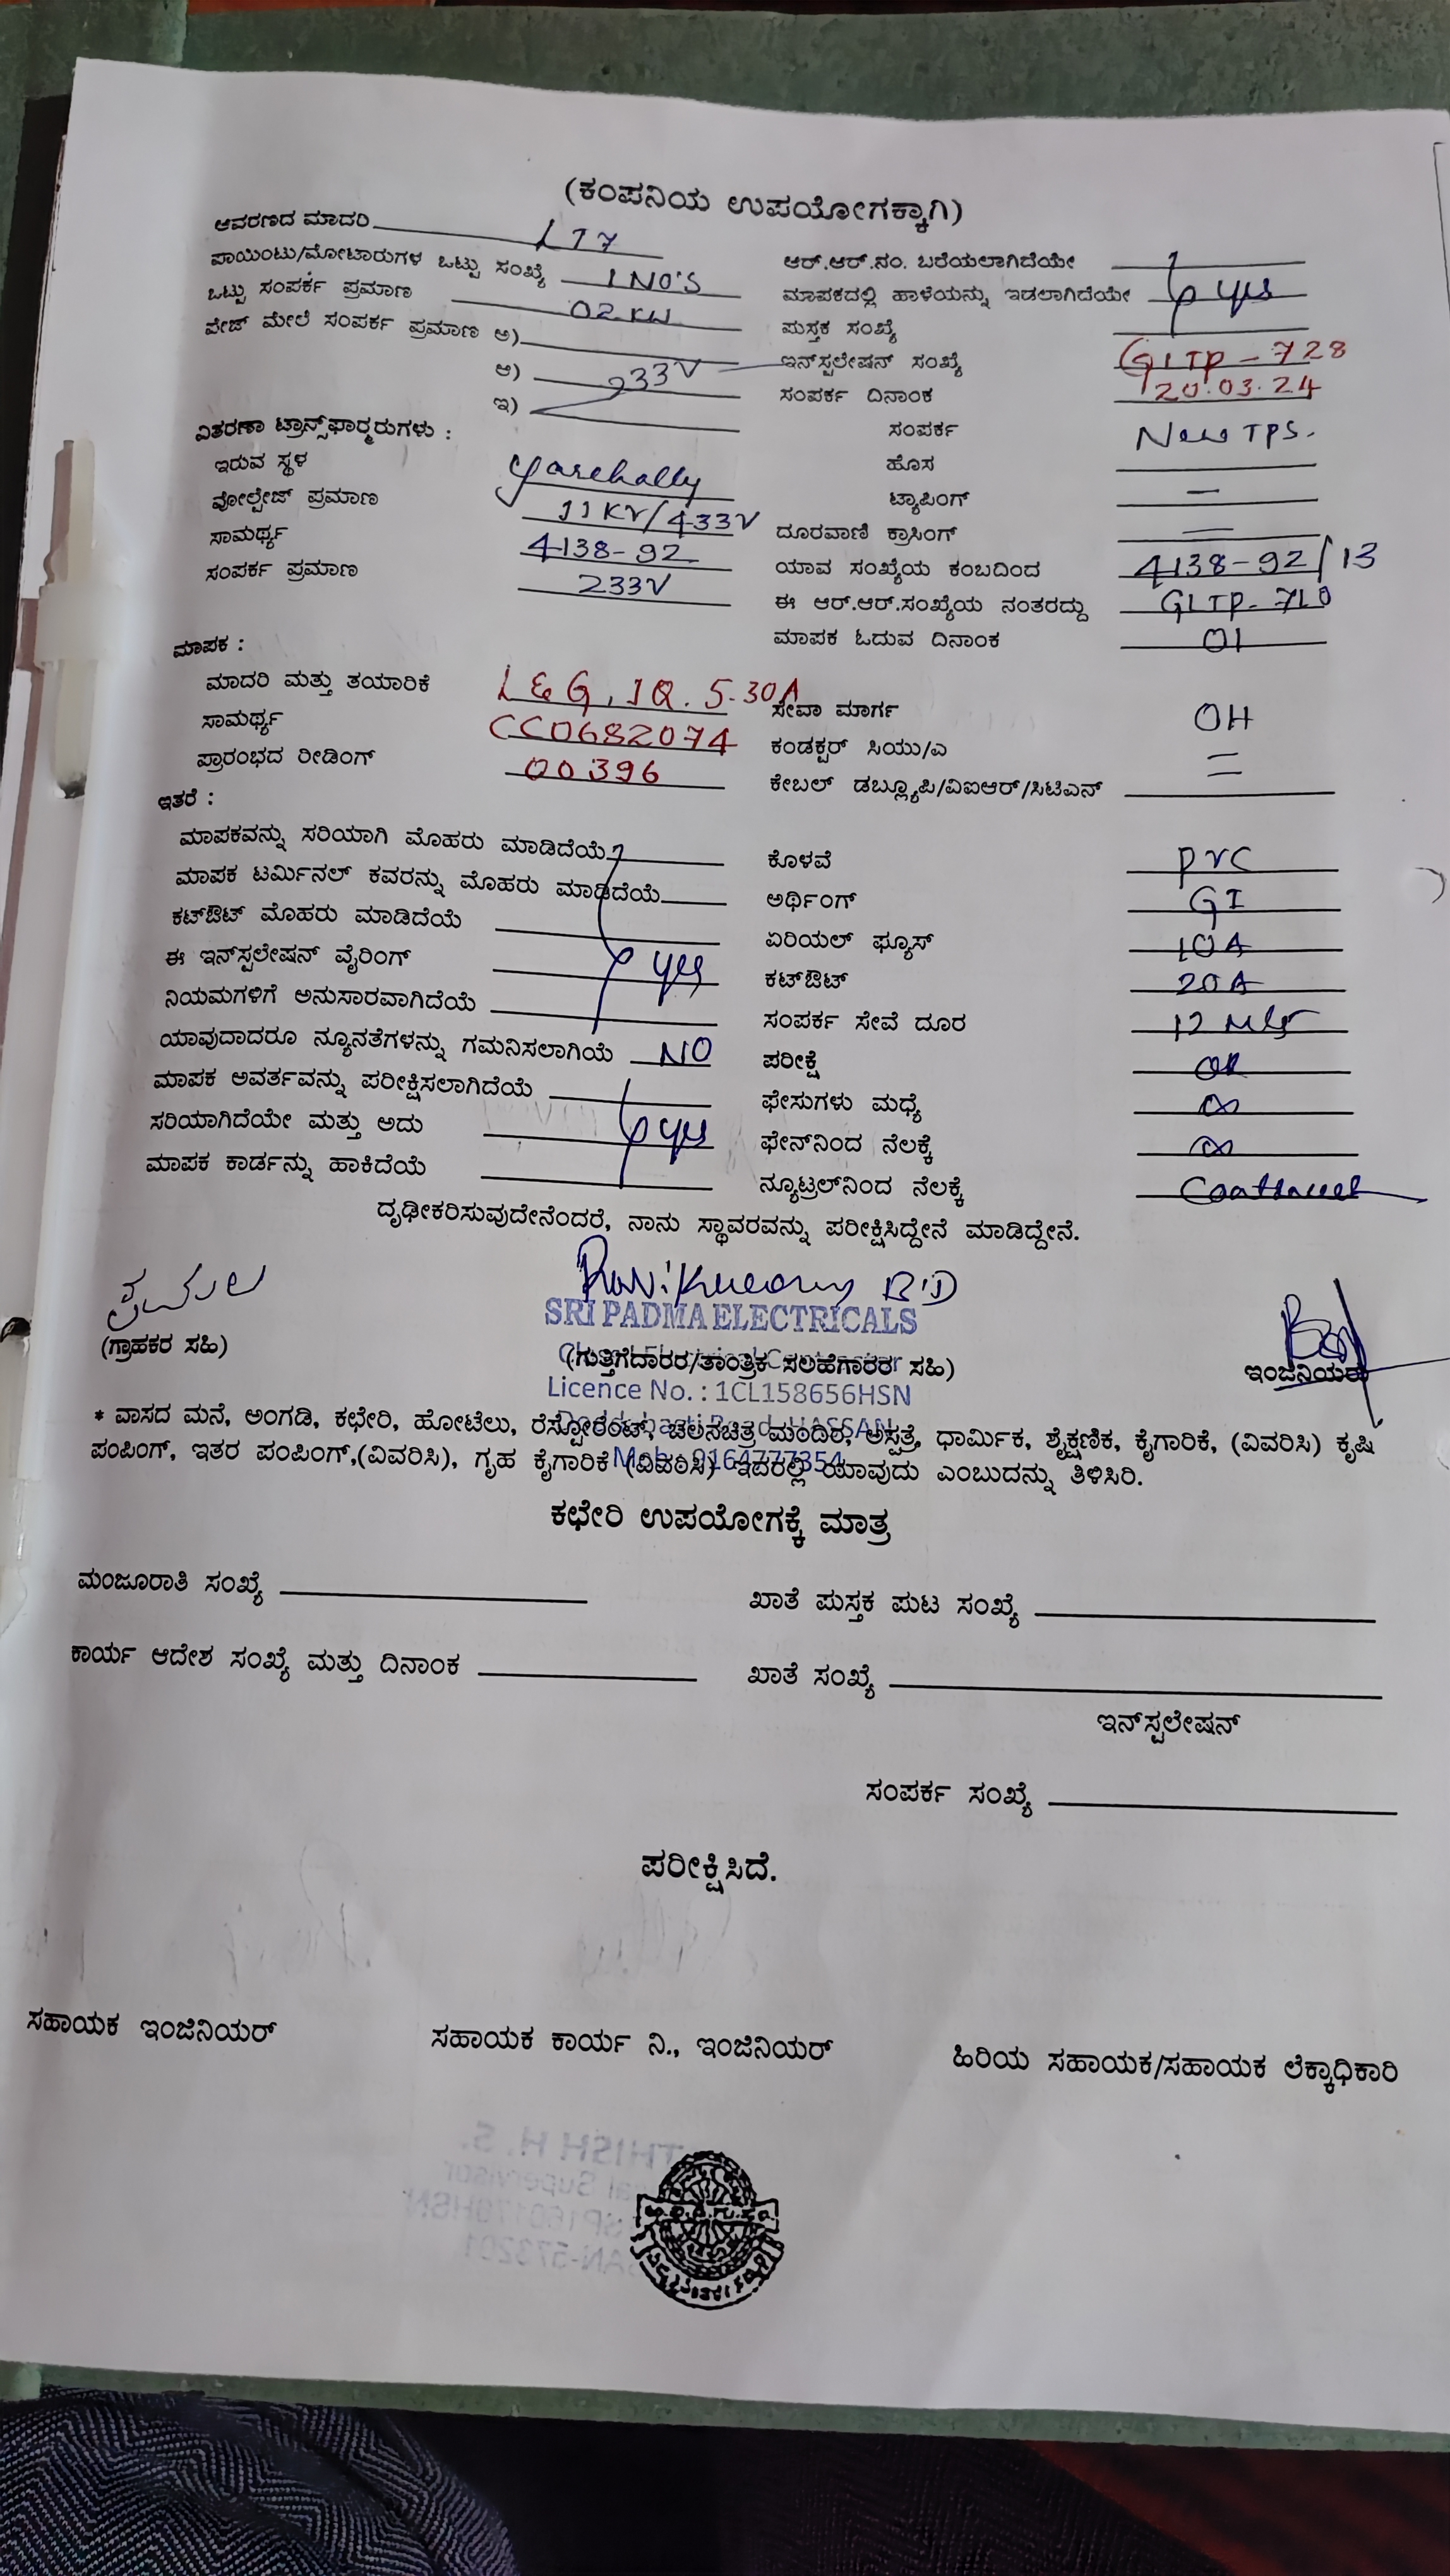 (ಕಂಪನಿಯ ಉಪಯೋಗಕ್ಕಾಗಿ)
ಆವರಣದ ಮಾದರಿ LT7
ಪಾಯಿಂಟು/ಮೋಟಾರುಗಳ ಒಟ್ಟು ಸಂಖ್ಯೆ 1 NO'S
ಒಟ್ಟು ಸಂಪರ್ಕ ಪ್ರಮಾಣ 02 KW
ಪೇಜ್ ಮೇಲೆ ಸಂಪರ್ಕ ಪ್ರಮಾಣ ಅ)
ಆ) 233V
ಇ)
ವಿತರಣಾ ಟ್ರಾನ್ಸ್‌ಫಾರ್‍ಮರುಗಳು :
ಇರುವ ಸ್ಥಳ Yarehally
ವೋಲ್ಟೇಜ್ ಪ್ರಮಾಣ 11KV/433V
ಸಾಮರ್ಥ್ಯ 4138-92
ಸಂಪರ್ಕ ಪ್ರಮಾಣ 233V
ಮಾಪಕ :
ಮಾದರಿ ಮತ್ತು ತಯಾರಿಕೆ L&G, 1Q. 5-30A
ಸಾಮರ್ಥ್ಯ CC0682074
ಪ್ರಾರಂಭದ ರೀಡಿಂಗ್ 00396
ಇತರೆ :
ಮಾಪಕವನ್ನು ಸರಿಯಾಗಿ ಮೊಹರು ಮಾಡಿದೆಯೆ
ಮಾಪಕ ಟರ್ಮಿನಲ್ ಕವರನ್ನು ಮೊಹರು ಮಾಡಿದೆಯೆ
ಕಟ್‌ಔಟ್ ಮೊಹರು ಮಾಡಿದೆಯೆ
ಈ ಇನ್‌ಸ್ಟಲೇಷನ್ ವೈರಿಂಗ್ yes
ನಿಯಮಗಳಿಗೆ ಅನುಸಾರವಾಗಿದೆಯೆ
ಯಾವುದಾದರೂ ನ್ಯೂನತೆಗಳನ್ನು ಗಮನಿಸಲಾಗಿಯೆ NO
ಮಾಪಕ ಅವರ್ತವನ್ನು ಪರೀಕ್ಷಿಸಲಾಗಿದೆಯೆ
ಸರಿಯಾಗಿದೆಯೇ ಮತ್ತು ಅದು yes
ಮಾಪಕ ಕಾರ್ಡನ್ನು ಹಾಕಿದೆಯೆ
ಆರ್.ಆರ್.ನಂ. ಬರೆಯಲಾಗಿದೆಯೇ
ಮಾಪಕದಲ್ಲಿ ಹಾಳೆಯನ್ನು ಇಡಲಾಗಿದೆಯೇ yes
ಪುಸ್ತಕ ಸಂಖ್ಯೆ
ಇನ್‌ಸ್ಟಲೇಷನ್ ಸಂಖ್ಯೆ GLTP-728
ಸಂಪರ್ಕ ದಿನಾಂಕ 20.03.24
ಸಂಪರ್ಕ New TPS.
ಹೊಸ
ಟ್ಯಾಪಿಂಗ್ —
ದೂರವಾಣಿ ಕ್ರಾಸಿಂಗ್ —
ಯಾವ ಸಂಖ್ಯೆಯ ಕಂಬದಿಂದ 4138-92/13
ಈ ಆರ್.ಆರ್.ಸಂಖ್ಯೆಯ ನಂತರದ್ದು GLTP-710
ಮಾಪಕ ಓದುವ ದಿನಾಂಕ 01
ಸೇವಾ ಮಾರ್ಗ OH
ಕಂಡಕ್ಟರ್ ಸಿಯು/ಎ =
ಕೇಬಲ್ ಡಬ್ಲ್ಯೂಪಿ/ವಿಐಆರ್/ಸಿಟಿಎನ್
ಕೊಳವೆ PVC
ಅರ್ಥಿಂಗ್ GI
ಏರಿಯಲ್ ಫ್ಯೂಸ್ 10A
ಕಟ್‌ಔಟ್ 20A
ಸಂಪರ್ಕ ಸೇವೆ ದೂರ 12 Mtr
ಪರೀಕ್ಷೆ OK
ಫೇಸುಗಳು ಮಧ್ಯೆ ∞
ಫೇಸ್‌ನಿಂದ ನೆಲಕ್ಕೆ ∞
ನ್ಯೂಟ್ರಲ್‌ನಿಂದ ನೆಲಕ್ಕೆ
ದೃಢೀಕರಿಸುವುದೇನೆಂದರೆ, ನಾನು ಸ್ಥಾವರವನ್ನು ಪರೀಕ್ಷಿಸಿದ್ದೇನೆ ಮಾಡಿದ್ದೇನೆ.
SRI PADMA ELECTRICALS
(ಗ್ರಾಹಕರ ಸಹಿ) (ಗುತ್ತಿಗೆದಾರರ/ತಾಂತ್ರಿಕ ಸಲಹೆಗಾರರ ಸಹಿ) ಇಂಜಿನಿಯರ್
Licence No. : 1CL158656HSN
* ವಾಸದ ಮನೆ, ಅಂಗಡಿ, ಕಛೇರಿ, ಹೋಟೆಲು, ರೆಸ್ಟೋರೆಂಟ್, ಚಲನಚಿತ್ರ ಮಂದಿರ, ಅಸ್ಪತ್ರೆ, ಧಾರ್ಮಿಕ, ಶೈಕ್ಷಣಿಕ, ಕೈಗಾರಿಕೆ, (ವಿವರಿಸಿ) ಕೃಷಿ
ಪಂಪಿಂಗ್, ಇತರ ಪಂಪಿಂಗ್,(ವಿವರಿಸಿ), ಗೃಹ ಕೈಗಾರಿಕೆ (ವಿವರಿಸಿ) ಇದರಲ್ಲಿ ಯಾವುದು ಎಂಬುದನ್ನು ತಿಳಿಸಿರಿ.
ಕಛೇರಿ ಉಪಯೋಗಕ್ಕೆ ಮಾತ್ರ
ಮಂಜೂರಾತಿ ಸಂಖ್ಯೆ ಖಾತೆ ಪುಸ್ತಕ ಪುಟ ಸಂಖ್ಯೆ
ಕಾರ್ಯ ಆದೇಶ ಸಂಖ್ಯೆ ಮತ್ತು ದಿನಾಂಕ ಖಾತೆ ಸಂಖ್ಯೆ
ಇನ್‌ಸ್ಟಲೇಷನ್
ಸಂಪರ್ಕ ಸಂಖ್ಯೆ
ಪರೀಕ್ಷಿಸಿದೆ.
ಸಹಾಯಕ ಇಂಜಿನಿಯರ್ ಸಹಾಯಕ ಕಾರ್ಯ ನಿ., ಇಂಜಿನಿಯರ್ ಹಿರಿಯ ಸಹಾಯಕ/ಸಹಾಯಕ ಲೆಕ್ಕಾಧಿಕಾರಿ